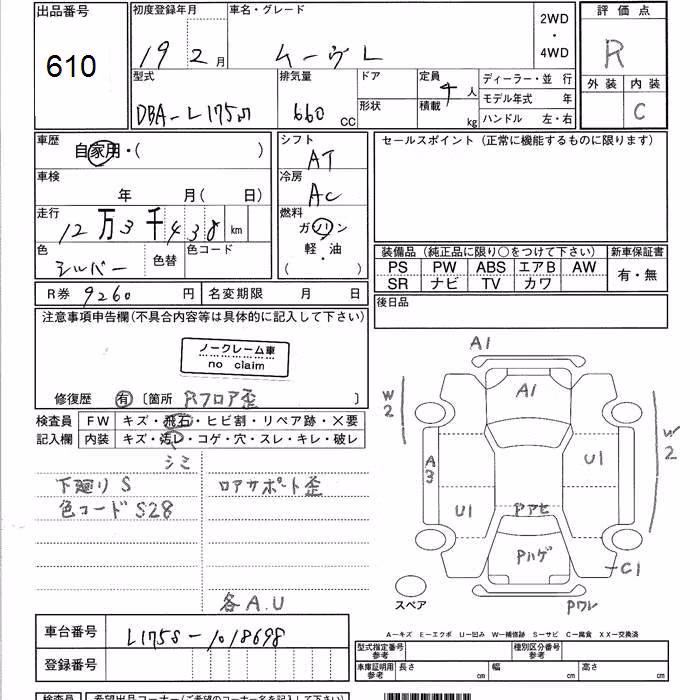 出品番号 初度登録年月 車名・グレード 2WD ・ 4WD 評価点
610 19 2月 ムーヴ L R
型式 排気量 ドア 定員 4人 ディーラー・並 行 外装 内装
DBA-L175S 660 CC 形状 積載 kg モデル年式 年 C
ハンドル 左・右
車歴 自家用・( ) シフト AT セールスポイント (正常に機能するものに限ります)
車検 年 月( 日) 冷房 AC
走行 12万3千438km 燃料 ガソリン 軽・油 ( )
色 シルバー 色替 色コード
装備品 (純正品に限り○をつけて下さい) 新車保証書
PS PW ABS エアB AW 有・無
SR ナビ TV カワ
R券 9260円 名変期限 月 日 後日品
注意事項申告欄(不具合内容等は具体的に記入して下さい)
ノークレーム車
no claim
修復歴 有 〔箇所 Rフロア歪 〕
検査員 FW キズ・飛石・ヒビ割・リペア跡・X要
記入欄 内装 キズ・汚レ・コゲ・穴・スレ・キレ・破レ
シミ
下廻り S ロアサポート歪
色コード S28
各A.U
A1
A1
W2
W2
A3
U1
U1
Pハゲ
C1
Pワレ
スペア
A-キズ E-エクボ U-凹み W-補修跡 S-サビ C-腐食 XX-交換済
車台番号 L175S-1018698
型式指定番号 参考 種別区分番号 参考
登録番号 車庫証明用 参考 長さ cm 幅 cm 高さ cm
検査員 希望出品コーナー(ご希望のコーナー名を記入下さい)